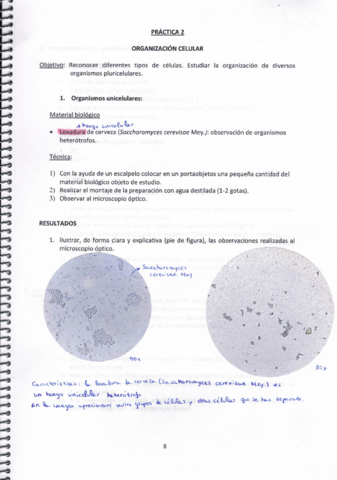 PRÁCTICA 2
ORGANIZACIÓN CELULAR
Objetivo: Reconocer diferentes tipos de células. Estudiar la organización de diversos
organismos pluricelulares.
1. Organismos unicelulares:
Material biológico
hongo unicelular
• Levadura de cerveza (Saccharomyces cerevisae Mey.): observación de organismos
heterótrofos.
Técnica:
1) Con la ayuda de un escalpelo colocar en un portaobjetos una pequeña cantidad del
material biológico objeto de estudio.
2) Realizar el montaje de la preparación con agua destilada (1-2 gotas).
3) Observar al microscopio óptico.
RESULTADOS
1. Ilustrar, de forma clara y explicativa (pie de figura), las observaciones realizadas al
microscopio óptico.
Saccharomyces
cerevisae Mey
Características: la levadura de cerveza (Saccharomyces cerevisae Mey.) es
un hongo unicelular heterótrofo
En la imagen apreciamos varios grupos de células y otras células que se han separado.
8